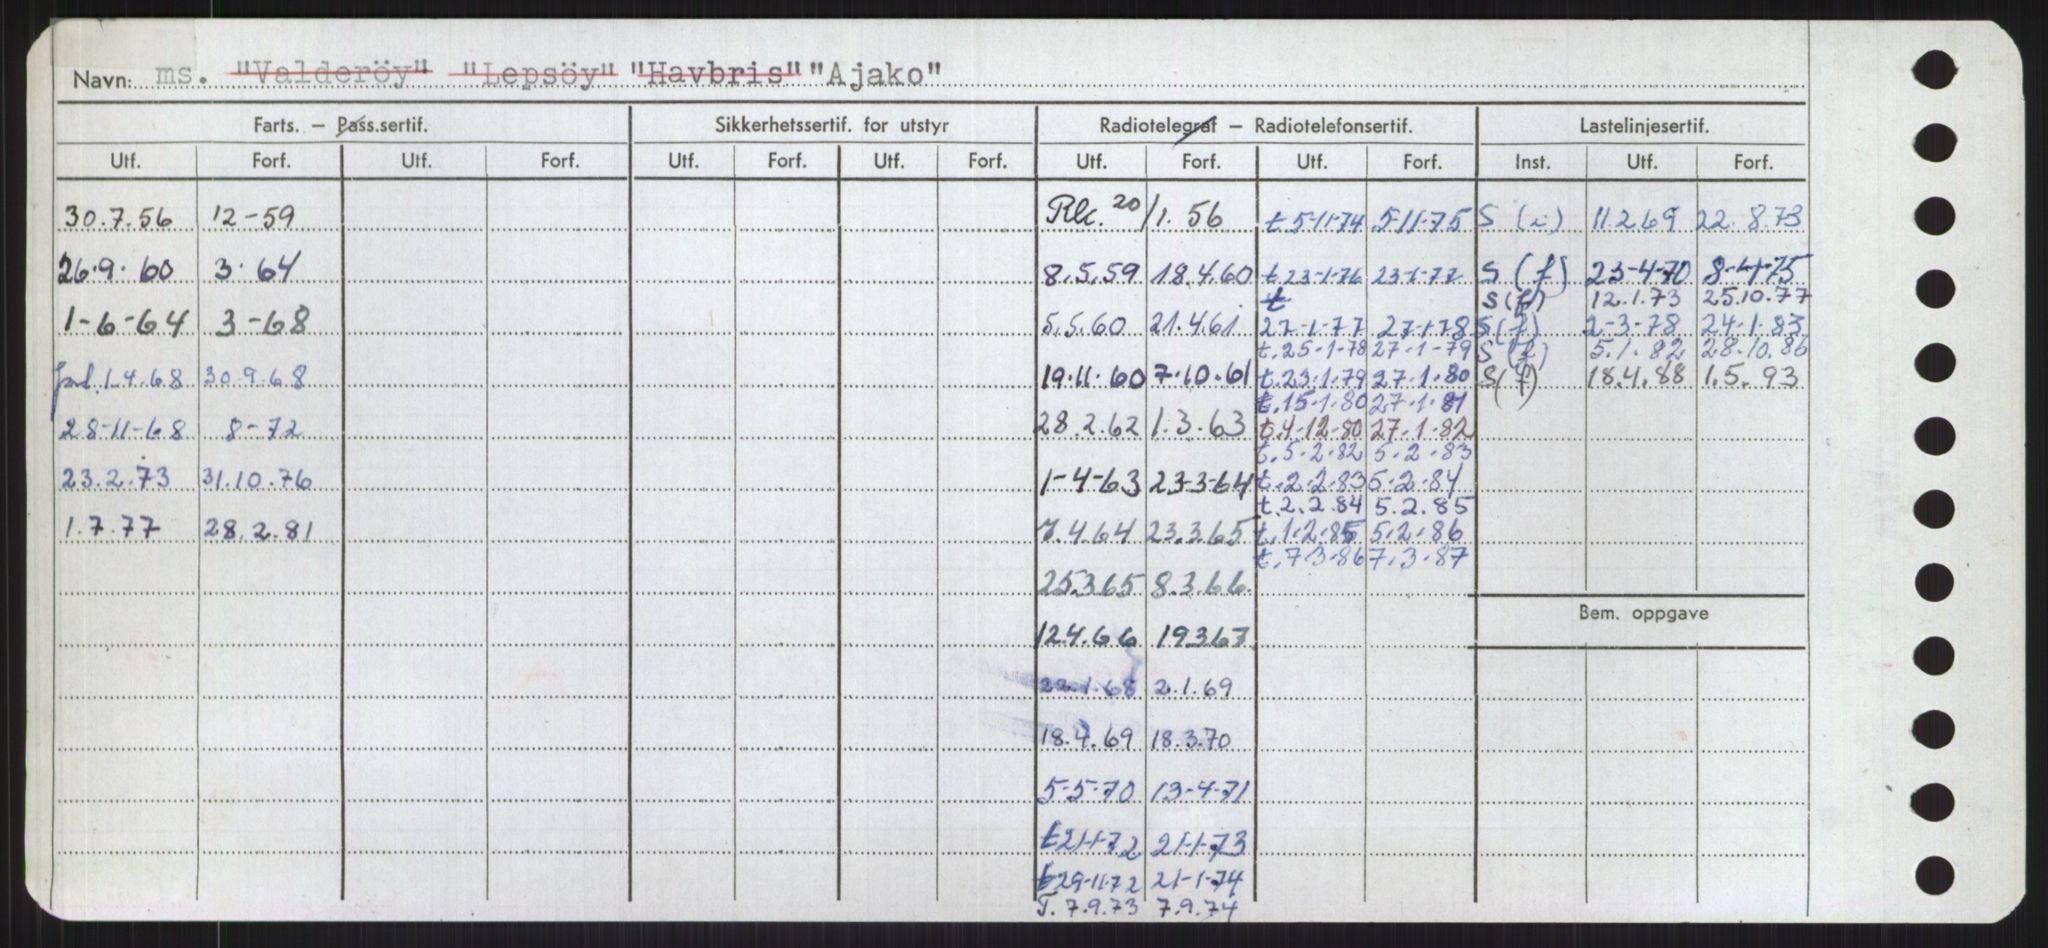 Navn: ms. "Valderöy" "Lepsöy" "Havbris" "Ajako"
Farts. – Pass.sertif. Sikkerhetssertif. for utstyr Radiotelegraf – Radiotelefonsertif. Lastelinjesertif.
Utf. Forf. Utf. Forf. Utf. Forf. Utf. Forf. Utf. Forf. Utf. Forf. Inst. Utf. Forf.
30.7.56 12-59 Rk. 20/1.56 t 5-11-74 5-11-75 S (i) 11.2.69 22.8.73
26.9.60 3.64 8.5.59 18.4.60 t 23-1-76 23-1-77 S (f) 23-4-70 8-4-75
t S(f) 12.1.73 25.10.77
1-6-64 3-68 5.5.60 21.4.61 27-1-77 27-1-78 S(f) 2-3-78 24-1-83
t.25-1-78 27-1-79 S(f) 5.1.82 28.10.86
1.4.68 30.9.68 19.11.60 7.10.61 t.23.1.79 27.1.80 S(f) 18.4.88 1.5.93
t.15.1.80 27.1.81
28-11-68 8-72 28.2.62 1.3.63 t.4-12-80 27.1.82
t.5.2.82 5.2.83
23.2.73 31.10.76 1-4-63 23-3-64 t.2.2.83 5.2.84
t.2.2.84 5.2.85
1.7.77 28.2.81 7.4.64 23.3.65 t.1.2.85 5.2.86
t.7.3.86 7.3.87
25.3.65 8.3.66.
Bem. oppgave
12.4.66 19.3.67
22.1.68 2.1.69
18.4.69 18.3.70
5-5-70 13-4-71
t 21-1-72 21-1-73
t 29-11-72 21-1-74
T. 7.9.73 7.9.74